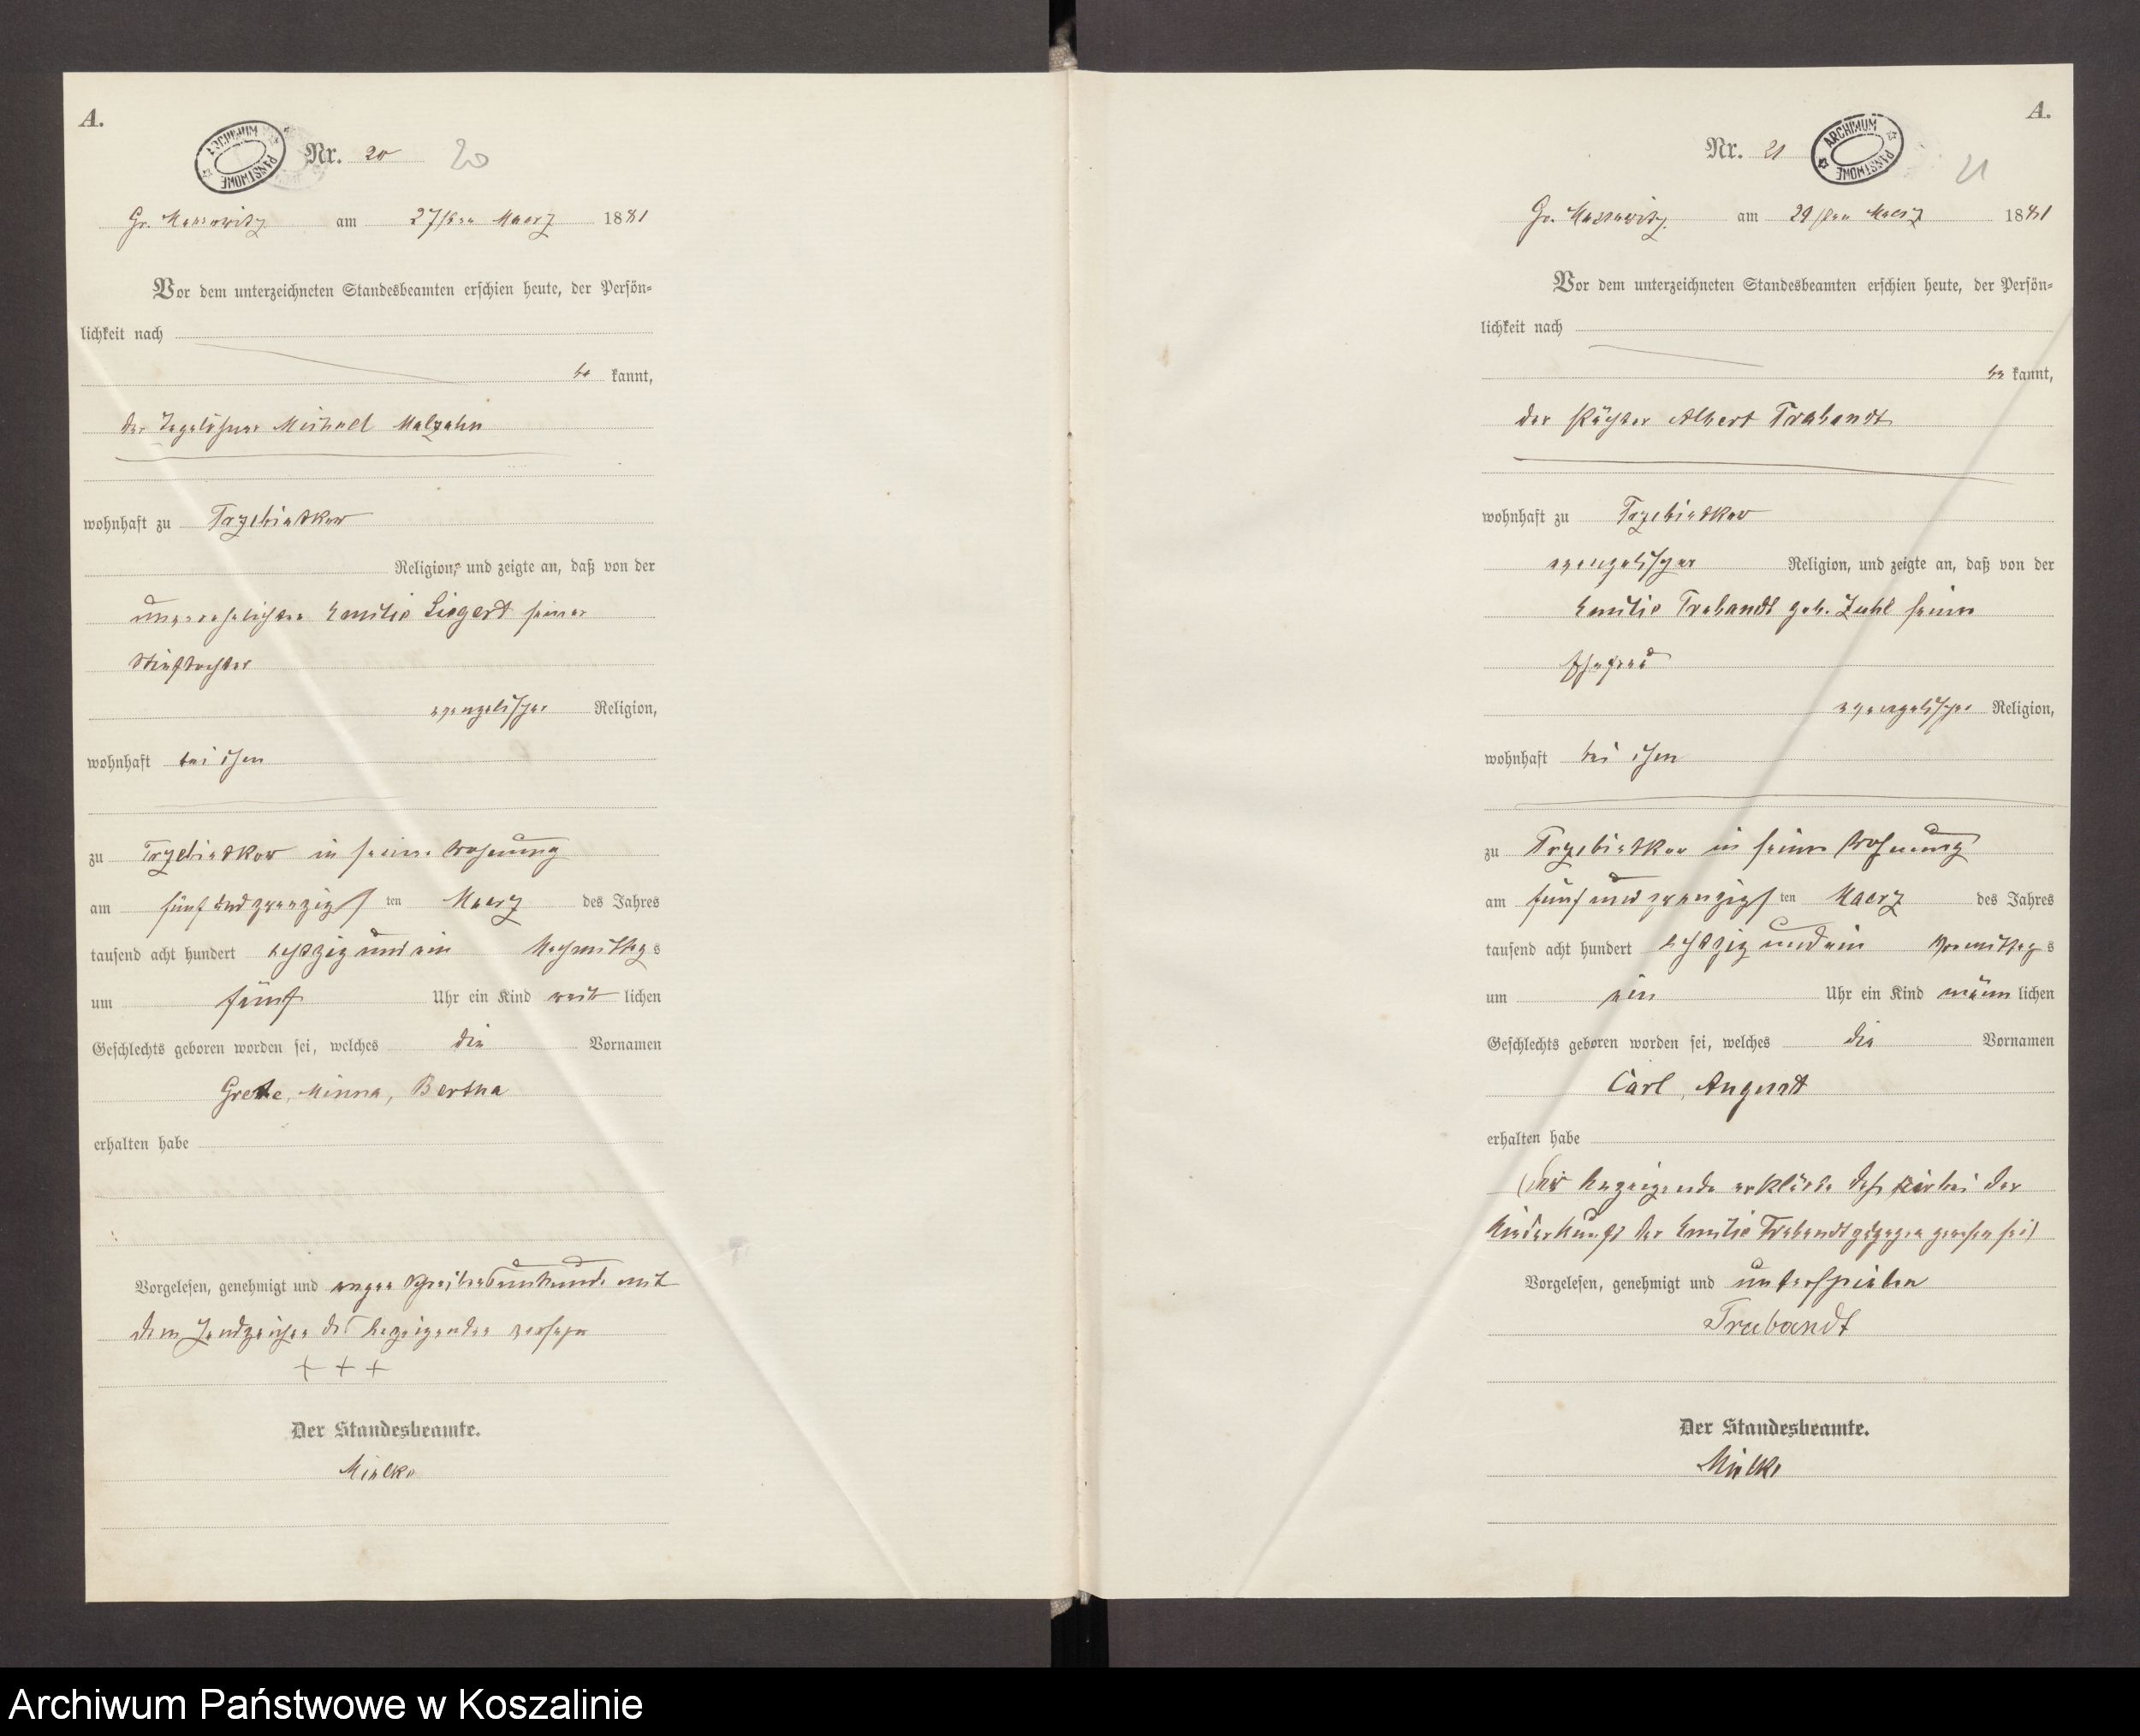 A.
ARCHIWUM PAŃSTWOWE
Nr. 20
20
Gr. Massowitz am 27sten Maerz 1881
Vor dem unterzeichneten Standesbeamten erschien heute, der Persön-
lichkeit nach
be kannt,
der Tagelöhner Michael Malzahn
wohnhaft zu Trzebiatkow
Religion, und zeigte an, daß von der
unverehelichten Emilie Siegert seiner
Stieftochter
evangelischer Religion,
wohnhaft bei ihm
zu Trzebiatkow in seiner Wohnung
am fünf und zwanzigs ten Maerz des Jahres
tausend acht hundert achtzig und ein Nachmittag s
um fünf Uhr ein Kind weib lichen
Geschlechts geboren worden sei, welches die Vornamen
Grete, Minna, Bertha
erhalten habe
Vorgelesen, genehmigt und wegen Schreibensunkunde mit
dem Handzeichen des Anzeigenden versehen
+ + +
Der Standesbeamte.
Mielke
A.
Nr. 21
ARCHIWUM PAŃSTWOWE
21
Gr. Massowitz am 29sten Maerz 1881
Vor dem unterzeichneten Standesbeamten erschien heute, der Persön-
lichkeit nach
be kannt,
der Pächter Albert Trabandt
wohnhaft zu Trzebiatkow
evangelischer Religion, und zeigte an, daß von der
Emilie Trabandt geb. Zuhl seiner
Ehefrau
evangelischer Religion,
wohnhaft bei ihm
zu Trzebiatkow in seiner Wohnung
am fünf und zwanzigs ten Maerz des Jahres
tausend acht hundert achtzig und ein Vormittag s
um ein Uhr ein Kind männ lichen
Geschlechts geboren worden sei, welches die Vornamen
Carl, August
erhalten habe
(Der Anzeigende erklärte daß er bei der
Niederkunft der Emilie Trabandt zugegen gewesen sei)
Vorgelesen, genehmigt und unterschrieben
Trabandt
Der Standesbeamte.
Mielke
Archiwum Państwowe w Koszalinie